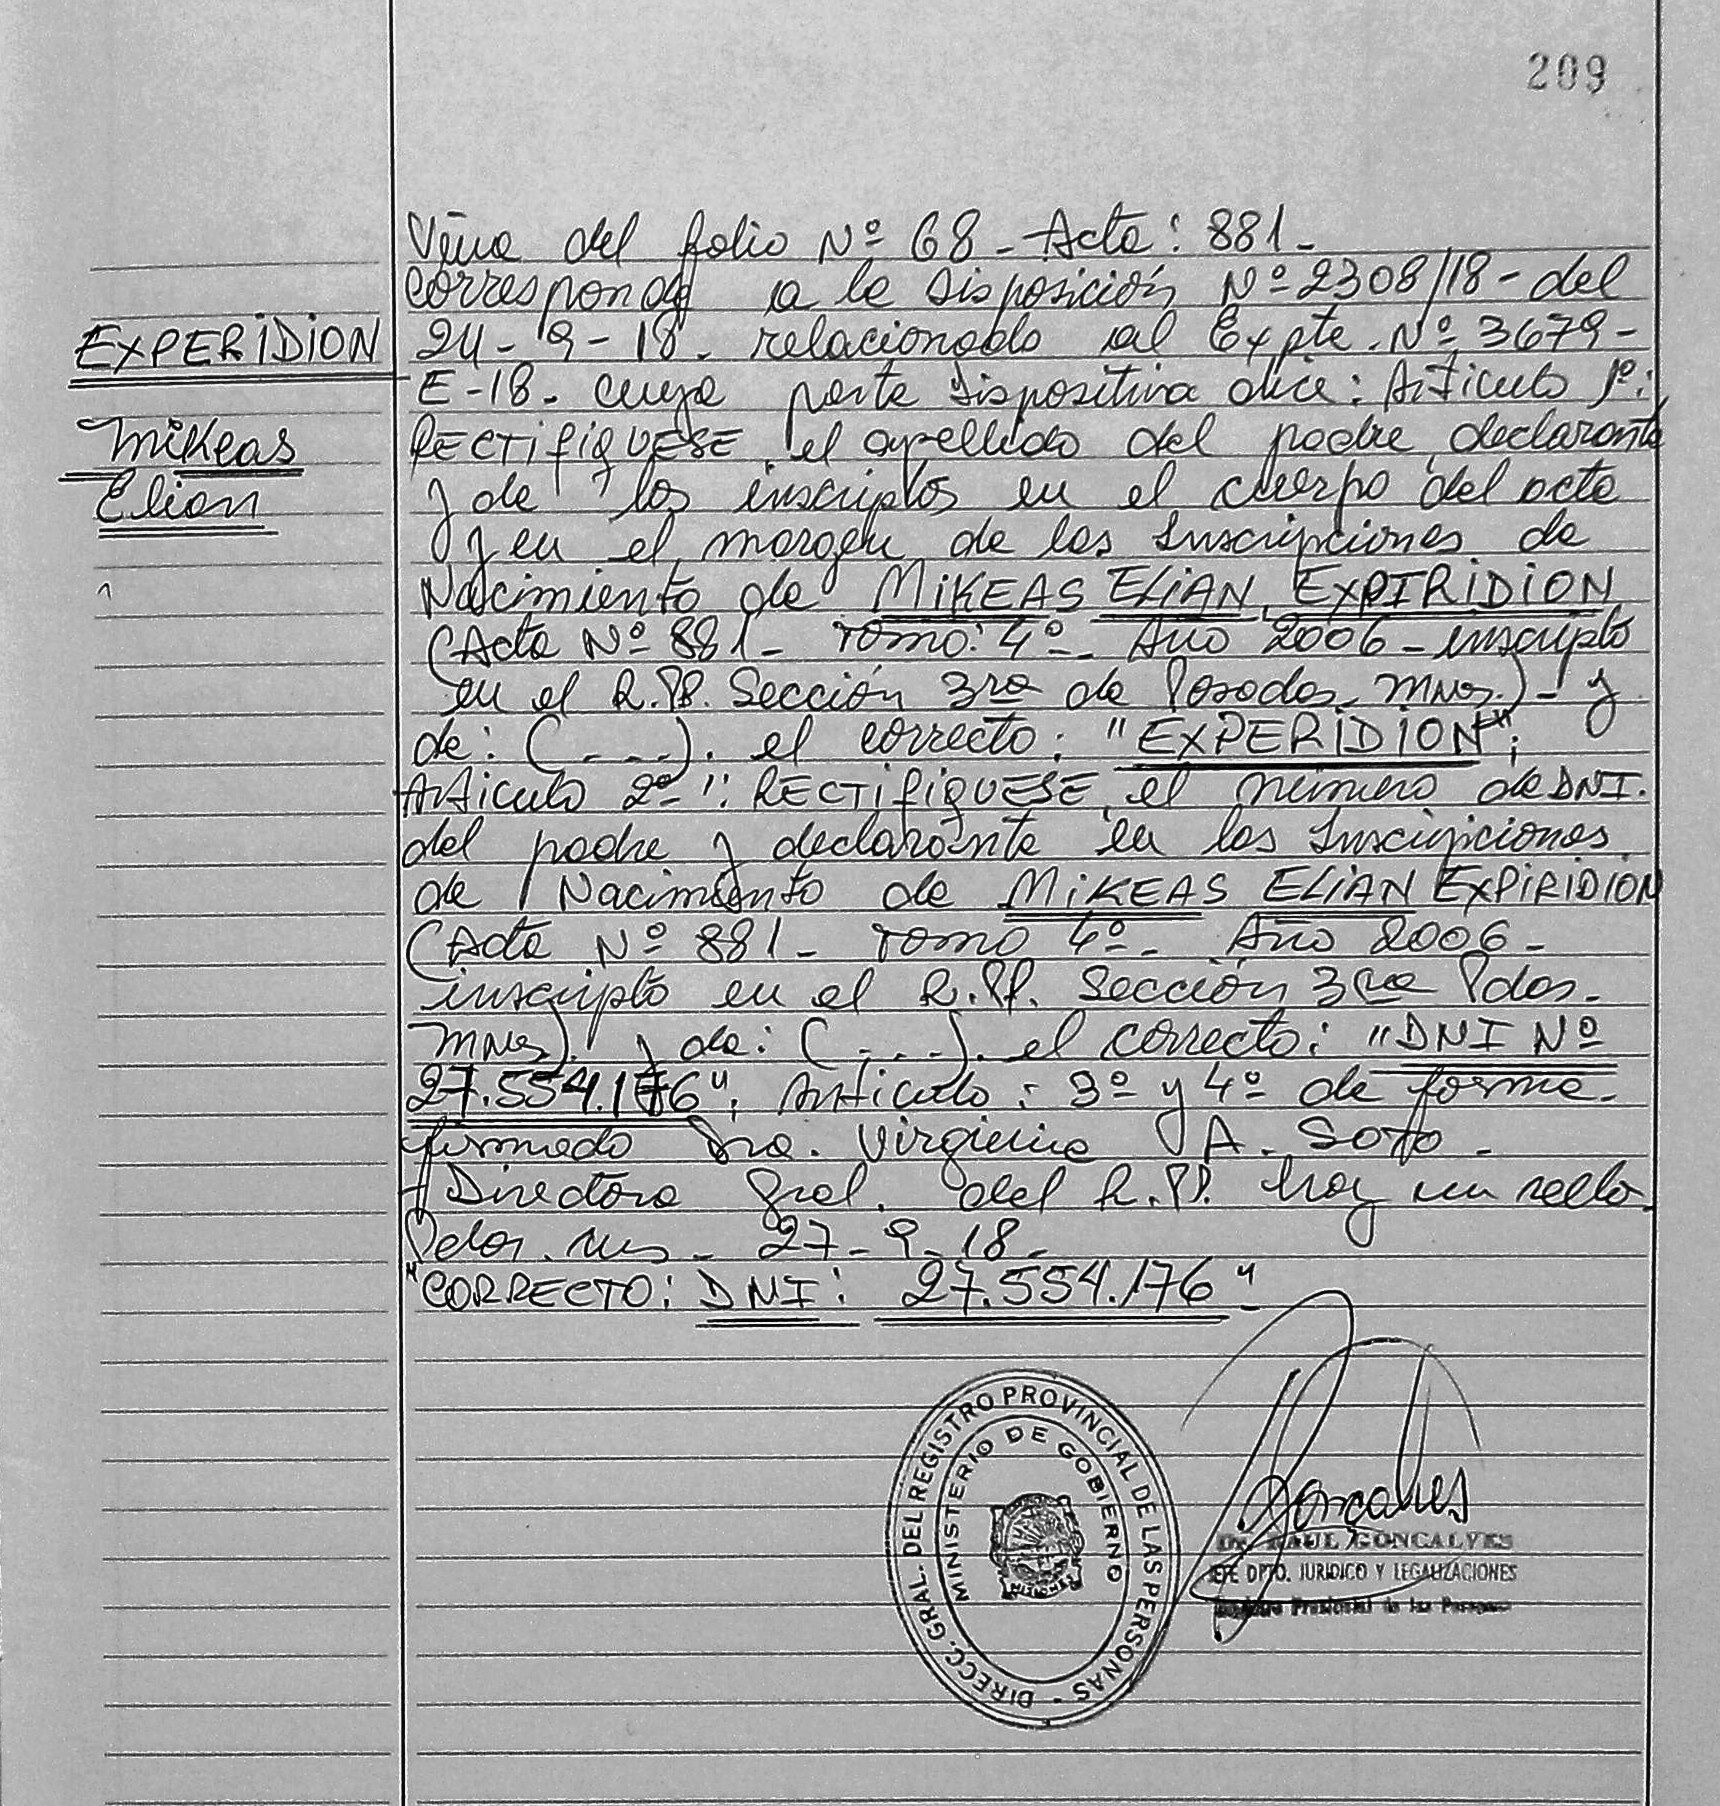 209
EXPERIDION
Mikeas
Elian
Viene del folio Nº 68 - Acta: 881 -
corresponde a la Disposición Nº 2308/18 - del
24 - 9 - 18 - relacionado al Expte. Nº 3679 -
E - 18 - cuya parte dispositiva dice: Artículo 1º:
RECTIFIQUESE, el apellido del padre, declarante
y de los inscriptos en el cuerpo del acta
y en el margen de las Inscripciones de
Nacimiento de MIKEAS ELIAN, EXPIRIDION
(Acta Nº 881 - Tomo: 4º - Año 2006 - inscripto
en el R.PP. Sección 3ra de Posadas. Mnes.) - y
de: (----). el correcto: "EXPERIDION";
Artículo 2º": RECTIFIQUESE, el número de DNI.
del padre y declarante en las Inscripciones
de Nacimiento de MIKEAS ELIAN EXPIRIDION
(Acta Nº 881 - Tomo 4º - Año 2006 -
inscripto en el R.PP. Sección 3ra Pdas.
Mnes). y de: (----). el correcto: "DNI Nº
27.554.176", Artículo: 3º y 4º de forma.
firmado Dra. Virginia A. Soto -
Directora Gral. del R.PP. hay un sello.
Pdas. Mns - 27 - 9 - 18 -
"CORRECTO: DNI: 27.554.176"
DIRECC. GRAL. DEL REGISTRO PROVINCIAL DE LAS PERSONAS -
MINISTERIO DE GOBIERNO
MISIONES
Goncalves
Dr. RAUL GONCALVES
JEFE DPTO. JURIDICO Y LEGALIZACIONES
Registro Provincial de las Personas